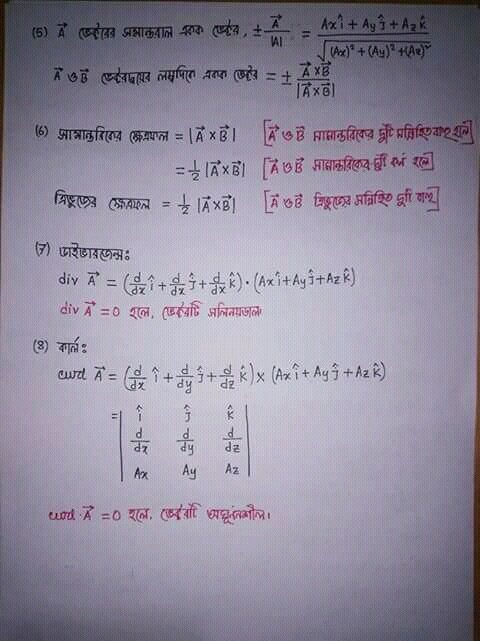 (5) A⃗ ভেক্টরের সমান্তরাল একক ভেক্টর, ± A⃗/|A| = (Axî + Ayĵ + Azk̂)/√((Ax)² + (Ay)² + (Az)²)
A⃗ ও B⃗ ভেক্টরদ্বয়ের লম্বদিকে একক ভেক্টর = ± (A⃗×B⃗)/|A⃗×B⃗|
(6) সামান্তরিকের ক্ষেত্রফল = |A⃗×B⃗| [A⃗ ও B⃗ সামান্তরিকের দুটি সন্নিহিত বাহু হলে]
= 1/2 |A⃗×B⃗| [A⃗ ও B⃗ সামান্তরিকের দুটি কর্ণ হলে]
ত্রিভুজের ক্ষেত্রফল = 1/2 |A⃗×B⃗| [A⃗ ও B⃗ ত্রিভুজের সন্নিহিত দুটি বাহু]
(7) ডাইভারজেন্স:
div A⃗ = (d/dx î + d/dx ĵ + d/dx k̂) · (Axî + Ayĵ + Azk̂)
div A⃗ = 0 হলে, ভেক্টরটি সলিনয়ডাল।
(8) কার্ল:
curl A⃗ = (d/dx î + d/dy ĵ + d/dz k̂) × (Axî + Ayĵ + Azk̂)
= | î ĵ k̂
d/dx d/dy d/dz
Ax Ay Az |
curl · A⃗ = 0 হলে, ভেক্টরটি অঘূর্ণনশীল।